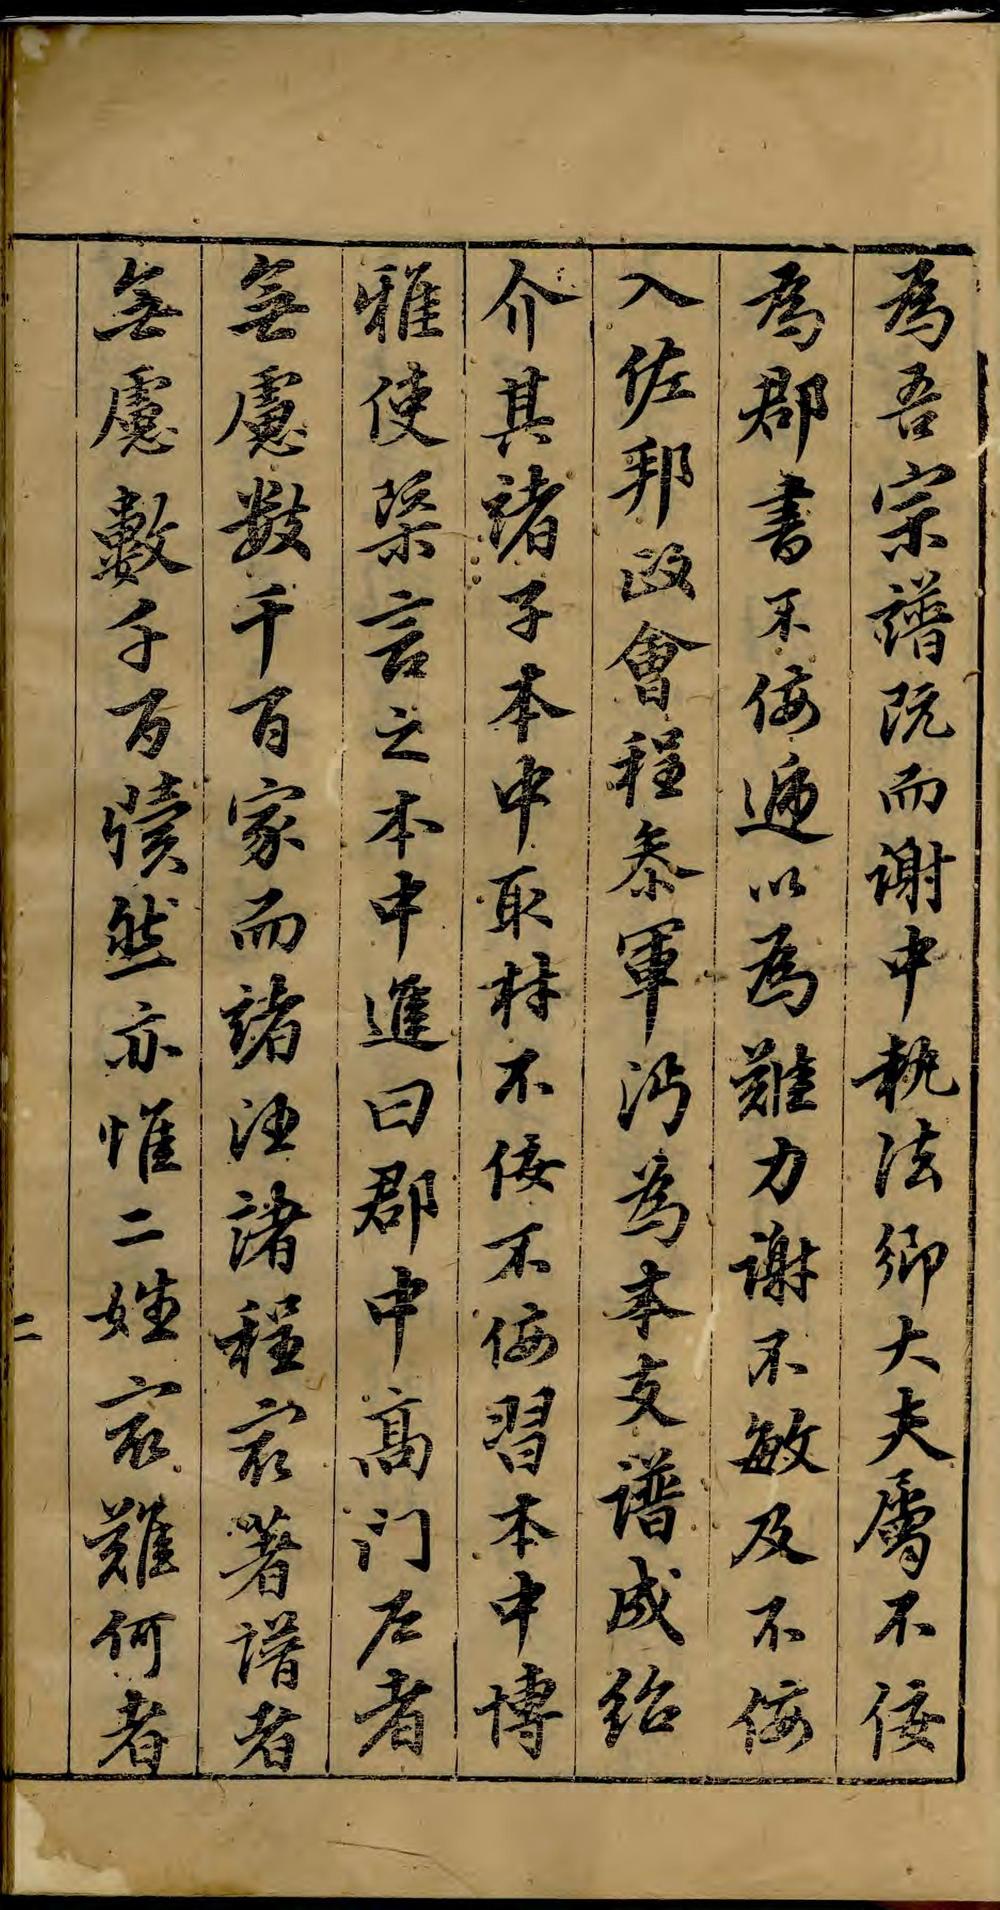 為吾宗譜既而谢中執法卿大夫屬不佞
為郡書不佞遜以為難力谢不敏及不佞
入佐邦政會程叅軍沔為本支譜成紹
介其諸子本中取材不佞不佞習本中博
雅使槩言之本中進曰郡中髙门右者
無慮数千百家而諸汪諸程宼著譜者
無慮數千百牘然亦惟二姓宼難何者
二